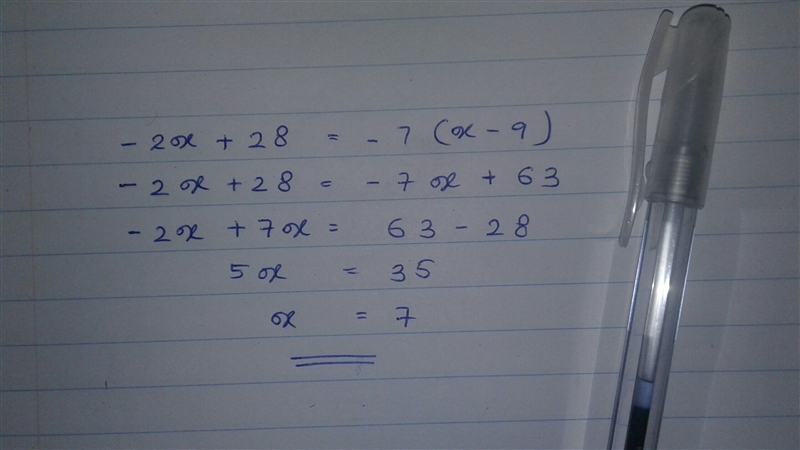 - 2x + 28 = - 7 (x - 9)
- 2x + 28 = - 7x + 63
- 2x + 7x = 63 - 28
5x = 35
x = 7